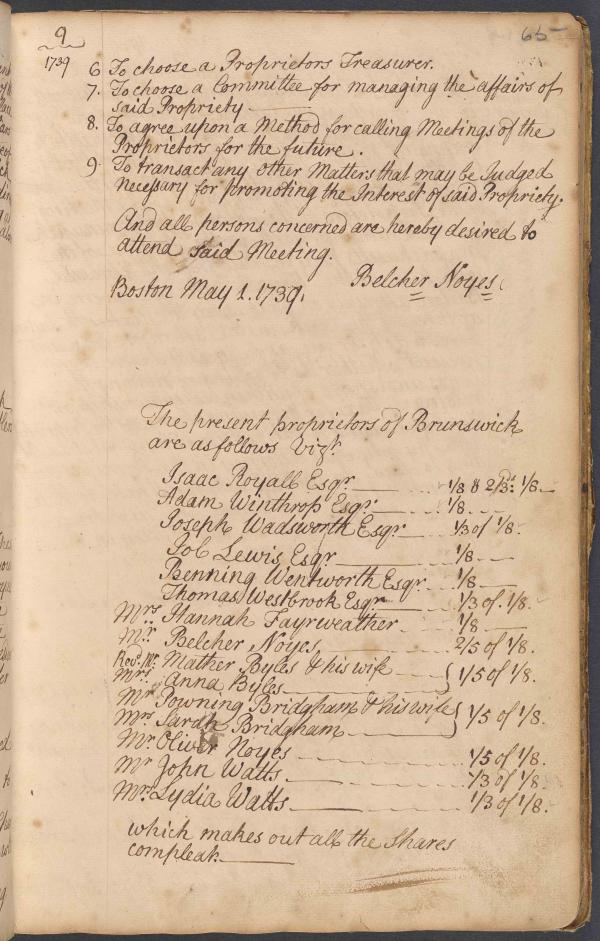 9
65
1739
6 To choose a Proprietors Treasurer.
7. To choose a Committee for managing the affairs of
said Propriety
8. To agree upon a Method for calling Meetings of the
Proprietors for the future.
9 To transact any other Matters that may be Judged
necessary for promoting the Interest of said Propriety.
And all persons concerned are hereby desired to
attend said Meeting.
Belcher Noyes
Boston May 1. 1739.
The present proprietors of Brunswick
are as follows Vizt.
Isaac Royall Esqr 1/8 & 2/3ds 1/8.
Adam Winthrop Esqr 1/8
Joseph Wadsworth Esqr 1/3 of 1/8.
Job Lewis Esqr 1/8
Benning Wentworth Esqr 1/8
Thomas Westbrook Esqr 1/3 of 1/8.
Mrs. Hannah Fayrweather 1/8
Mr. Belcher Noyes 2/5 of 1/8.
Revd. Mr. Mather Byles & his wife
Mrs Anna Byles } 1/5 of 1/8.
Mr Downing Bridgham & his wife
Mrs Sarah Bridgham } 1/5 of 1/8.
Mr. Oliver Noyes 1/5 of 1/8.
Mr John Watts 1/3 of 1/8
Mrs. Lydia Watts 1/3 of 1/8.
which makes out all the shares
compleat.